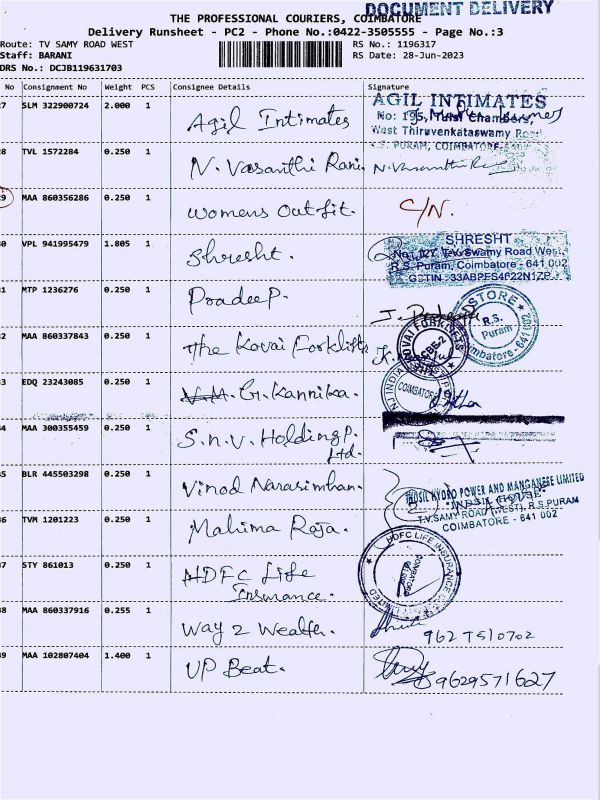 DOCUMENT DELIVERY
THE PROFESSIONAL COURIERS, COIMBATORE
Delivery Runsheet - PC2 - Phone No.:0422-3505555 - Page No.:3
Route: TV SAMY ROAD WEST
RS No.: 1196317
Staff: BARANI
RS Date: 28-Jun-2023
DRS No.: DCJB119631703
No Consignment No Weight PCS Consignee Details Signature
7 SLM 322900724 2.000 1 Agil Intimates
AGIL INTIMATES
No: 195, Chambers,
West Thiruvenkataswamy Road
R.S. PURAM, COIMBATORE-
8 TVL 1572284 0.250 1 N. Vasanthi Rani N. Vasanthi Rani
9 MAA 860356286 0.250 1 Womens Outfit. C/N.
0 VPL 941995479 1.805 1 Shresht.
SHRESHT
T.V. Swamy Road West,
R.S. Puram, Coimbatore - 641 002
GSTIN : 33ABPFS4622N1ZP
1 MTP 1236276 0.250 1 Pradeep.
STORE
R.S. Puram
Coimbatore - 641 002
2 MAA 860337843 0.250 1 The Kovai Forklifts
KOVAI FORKLIFTS
CBE-2
3 EDQ 23243085 0.250 1 V.M. G. Kannika.
COIMBATORE
4 MAA 300355459 0.250 1 S.N.V. Holding P.
Ltd.
5 BLR 445503298 0.250 1 Vinod Narasimhan.
INDSIL HYDRO POWER AND MANGANESE LIMITED
"INDSIL HOUSE"
T.V. SAMY ROAD (WEST), R.S PURAM
COIMBATORE - 641 002
6 TVM 1201223 0.250 1 Mahima Raja.
7 STY 861013 0.250 1 HDFC Life
Insurance.
HDFC LIFE INSURANCE CO
LIMITED
COIMBATORE
8 MAA 860337916 0.255 1 Way 2 Wealth. 9627510702
9 MAA 102807404 1.400 1 UP Beat. 9629571627